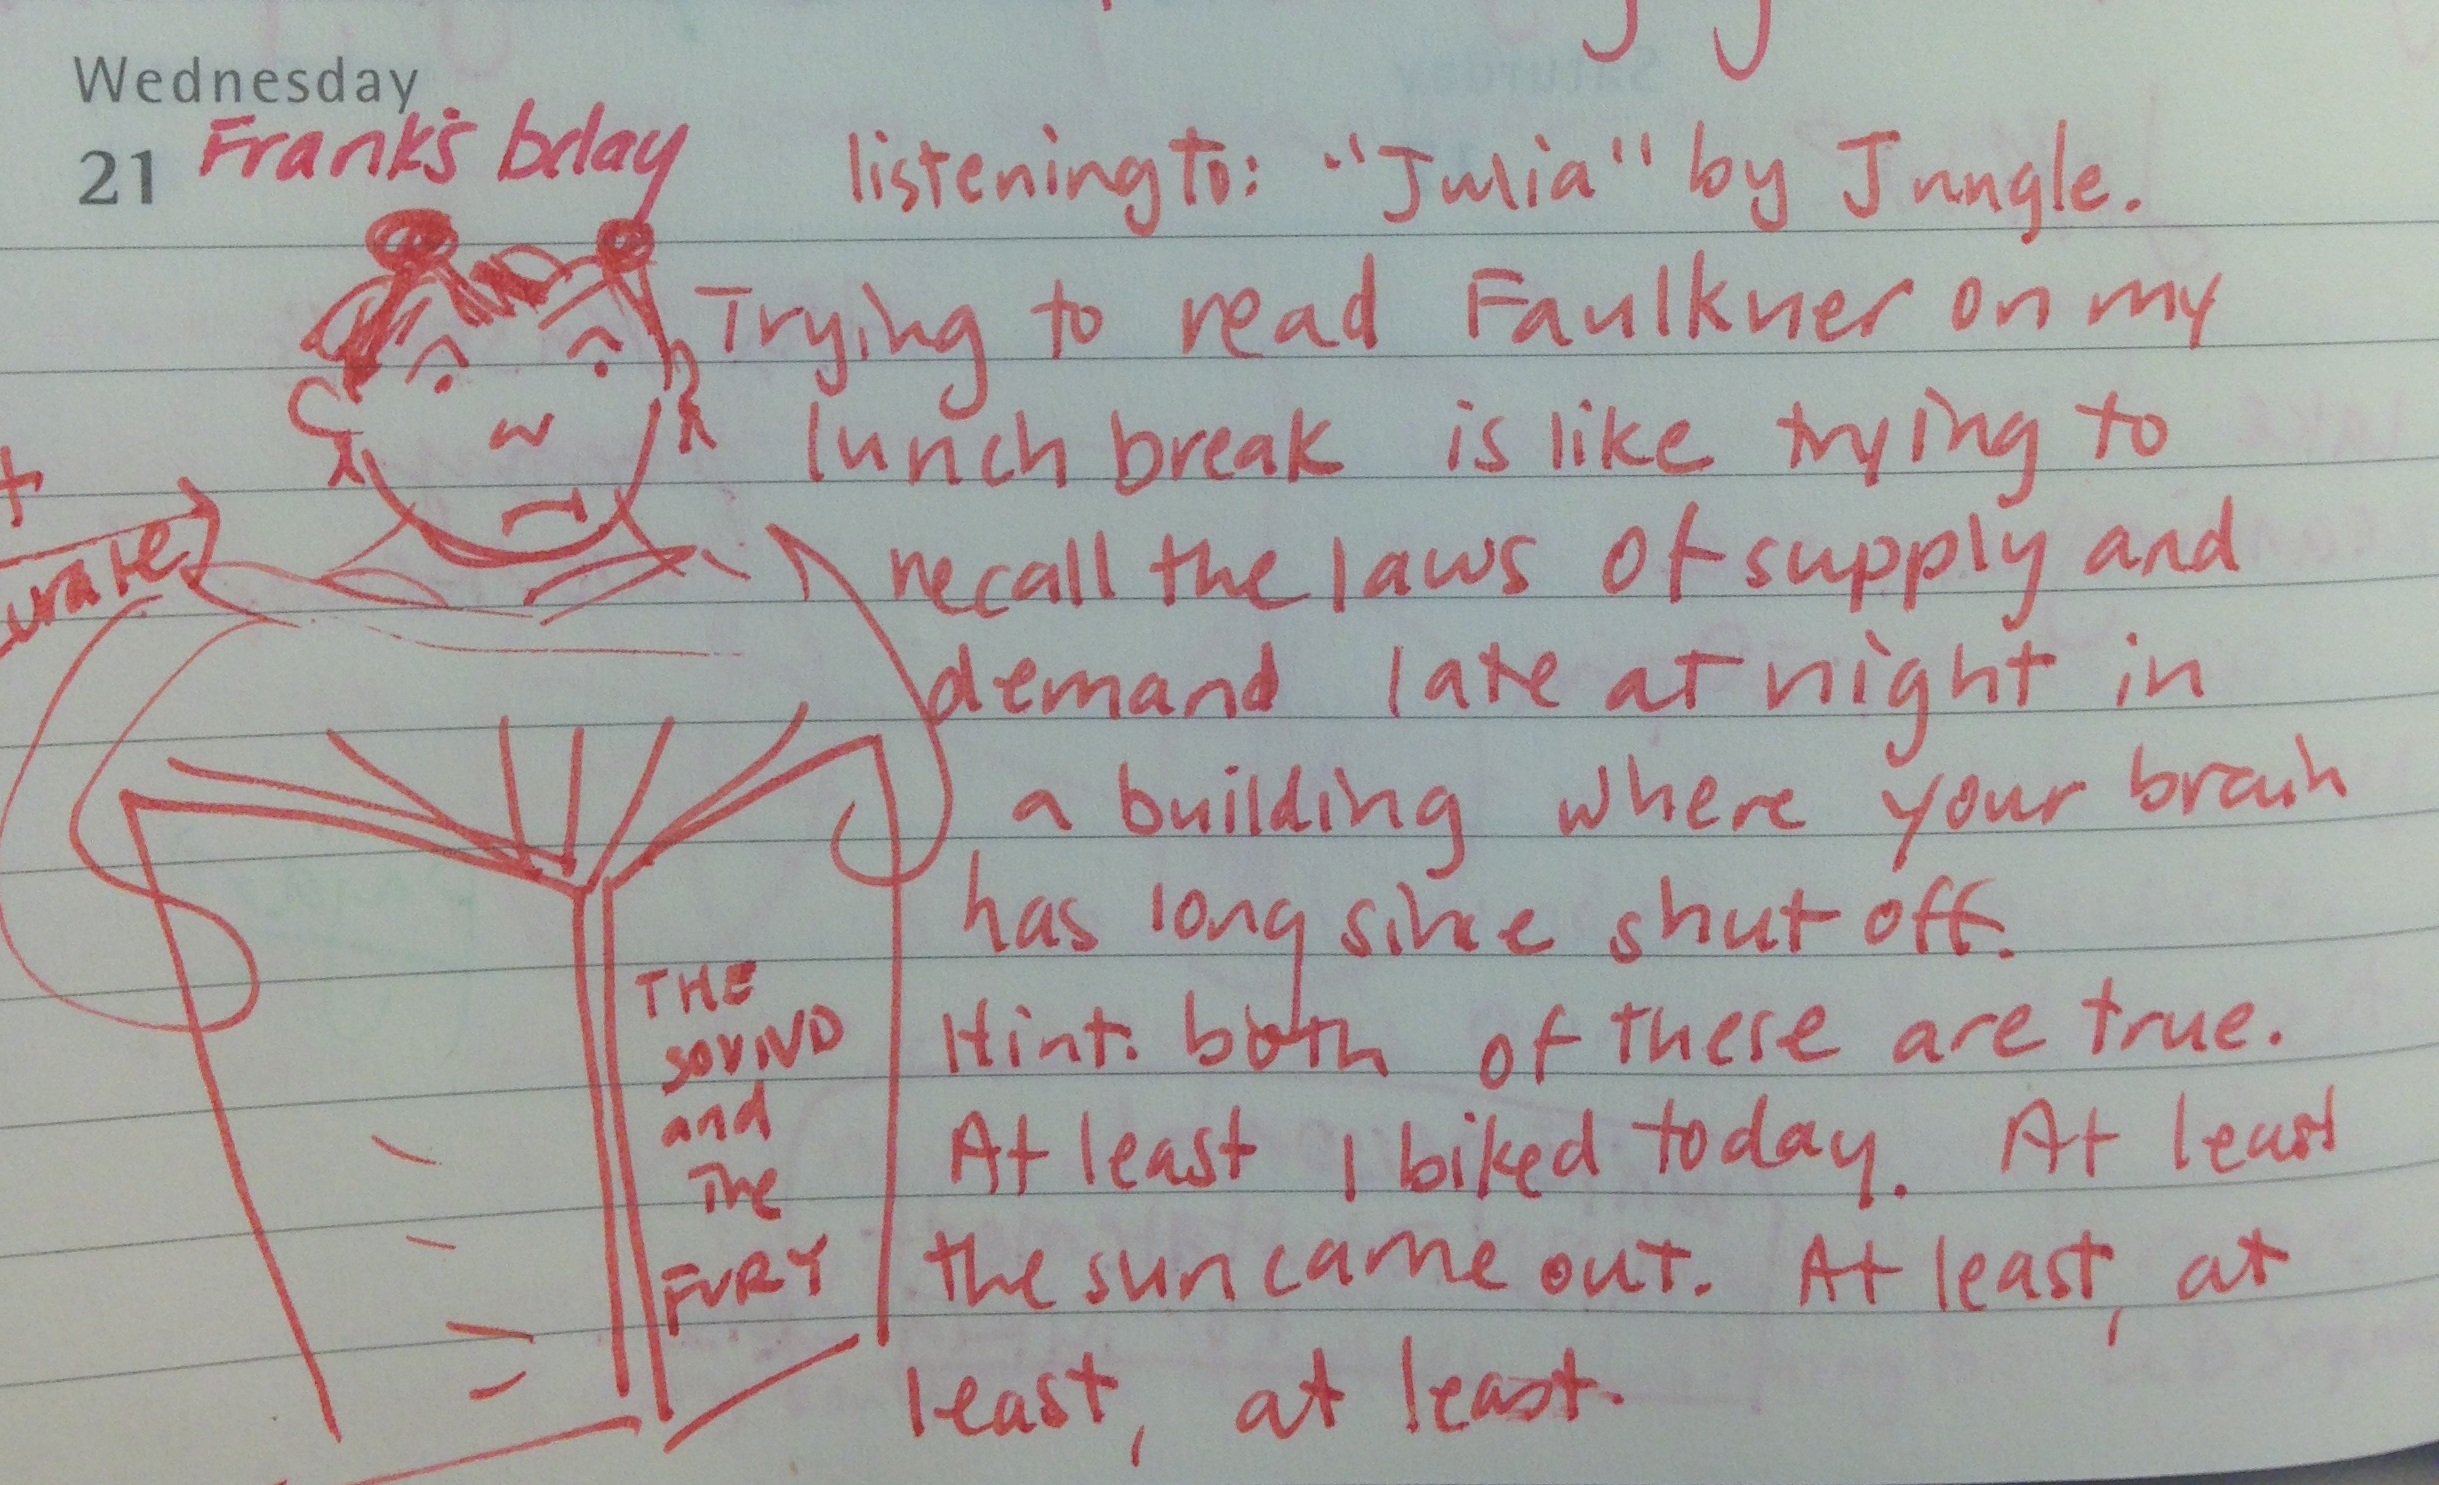 Wednesday
21 Frank's bday
listening to: "Julia" by Jungle.
Trying to read Faulkner on my
lunch break is like trying to
recall the laws of supply and
demand late at night in
a building where your brain
has long since shut off.
Hint: both of these are true.
At least I biked today. At least
the sun came out. At least, at
least, at least.
THE
SOUND
and
The
FURY